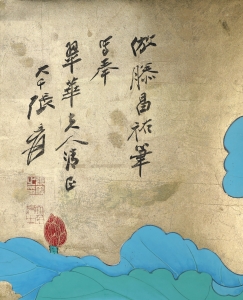 倣滕昌祐筆
寫奉
翠華夫人清正
大千張爰